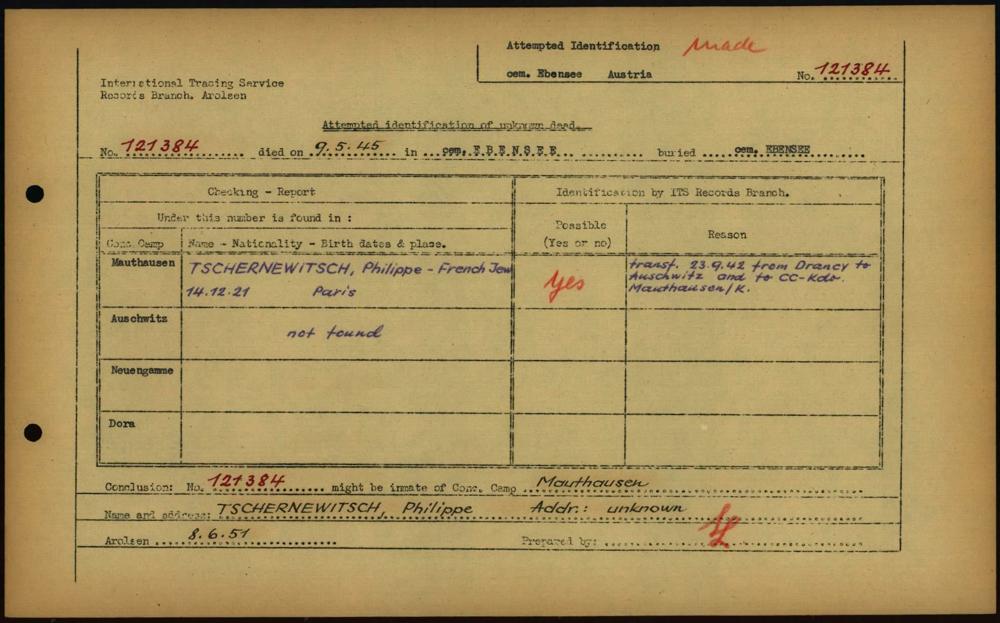 Attempted Identification made
cem. Ebensee Austria No. 121384
International Tracing Service
Records Branch. Arolsen
Attempted identification of unknown dead.
No. 121384 died on 9.5.45 in cem. EBENSEE buried cem. EBENSEE
Checking - Report
Identification by ITS Records Branch.
Under this number is found in :
Possible
(Yes or no)
Reason
Conc. Camp
Name - Nationality - Birth dates & place.
Mauthausen
TSCHERNEWITSCH, Philippe - French Jew
14.12.21 Paris
Yes
transf. 23.9.42 from Drancy to
Auschwitz and to CC-Kdo.
Mauthausen/K.
Auschwitz
not found
Neuengamme
Dora
Conclusion: No. 121384 might be inmate of Conc. Camp Mauthausen
Name and address: TSCHERNEWITSCH, Philippe Addr.: unknown
Arolsen, 8.6.51 Prepared by: